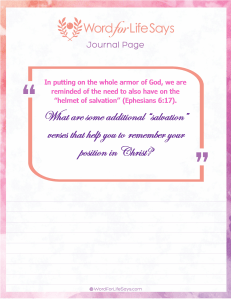 Word for Life Says
Journal Page
In putting on the whole armor of God, we are
reminded of the need to also have on the
"helmet of salvation" (Ephesians 6:17).
What are some additional "salvation"
verses that help you to remember your
position in Christ?
WordForLifeSays.com